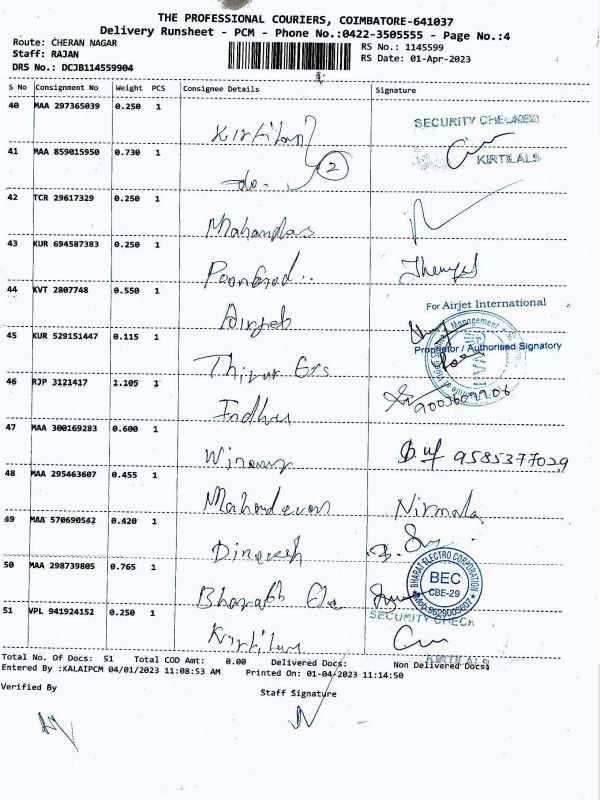 THE PROFESSIONAL COURIERS, COIMBATORE-641037
Delivery Runsheet - PCM - Phone No.:0422-3505555 - Page No.:4
Route: CHERAN NAGAR
RS No.: 1145599
Staff: RAJAN
RS Date: 01-Apr-2023
DRS No.: DCJB114559904
S No Consignment No Weight PCS Consignee Details Signature
40 MAA 297365039 0.250 1
Kirtilan
SECURITY CHECKED
41 MAA 859015950 0.730 1
KIRTILALS
-do- 2
42 TCR 29617329 0.250 1
Mahandas
43 KUR 694587383 0.250 1
44 KVT 2807748 0.550 1
Airjeb
For Airjet International
45 KUR 529151447 0.115 1
Proprietor / Authorised Signatory
46 RJP 3121417 1.105 1
47 MAA 300169283 0.600 1
9585377029
48 MAA 295463607 0.455 1
Mahadevan Nirmala
49 MAA 570690542 0.420 1
Dinesh
50 MAA 298739805 0.765 1
BHARAT ELECTRO CORPORATION
BEC
CBE-29
Bharath Ele
51 VPL 941924152 0.250 1
SECURITY CHECK
Kirtilan
KIRTILALS
Total No. Of Docs: 51 Total COD Amt: 0.00 Delivered Docs: Non Delivered Docs:
Entered By :KALAIPCM 04/01/2023 11:08:53 AM Printed On: 01-04-2023 11:14:50
Verified By
Staff Signature